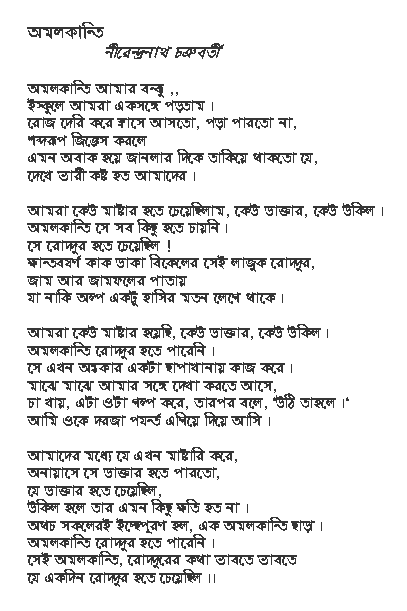 অমলকান্তি
নীরেন্দ্রনাথ চক্রবর্তী
অমলকান্তি আমার বন্ধু ,,
ইস্কুলে আমরা একসঙ্গে পড়তাম ।
রোজ দেরি করে ক্লাসে আসতো, পড়া পারতো না,
শব্দরূপ জিজ্ঞেস করলে
এমন অবাক হয়ে জানলার দিকে তাকিয়ে থাকতো যে,
দেখে ভারী কষ্ট হত আমাদের ।
আমরা কেউ মাষ্টার হতে চেয়েছিলাম, কেউ ডাক্তার, কেউ উকিল ।
অমলকান্তি সে সব কিছু হতে চায়নি ।
সে রোদ্দুর হতে চেয়েছিল !
ক্ষান্তবর্ষণ কাক ডাকা বিকেলের সেই লাজুক রোদ্দুর,
জাম আর জামফলের পাতায়
যা নাকি অল্প একটু হাসির মতন লেগে থাকে ।
আমরা কেউ মাষ্টার হয়েছি, কেউ ডাক্তার, কেউ উকিল ।
অমলকান্তি রোদ্দুর হতে পারেনি ।
সে এখন অন্ধকার একটা ছাপাখানায় কাজ করে ।
মাঝে মাঝে আমার সঙ্গে দেখা করতে আসে,
চা খায়, এটা ওটা গল্প করে, তারপর বলে, 'উঠি তাহলে ।'
আমি ওকে দরজা পযর্ন্ত এগিয়ে দিয়ে আসি ।
আমাদের মধ্যে যে এখন মাষ্টারি করে,
অনায়াসে সে ডাক্তার হতে পারতো,
যে ডাক্তার হতে চেয়েছিল,
উকিল হলে তার এমন কিছু ক্ষতি হত না ।
অথচ সকলেরই ইচ্ছেপূরণ হল, এক অমলকান্তি ছাড়া ।
অমলকান্তি রোদ্দুর হতে পারেনি ।
সেই অমলকান্তি, রোদ্দুরের কথা ভাবতে ভাবতে
যে একদিন রোদ্দুর হতে চেয়েছিল ।।